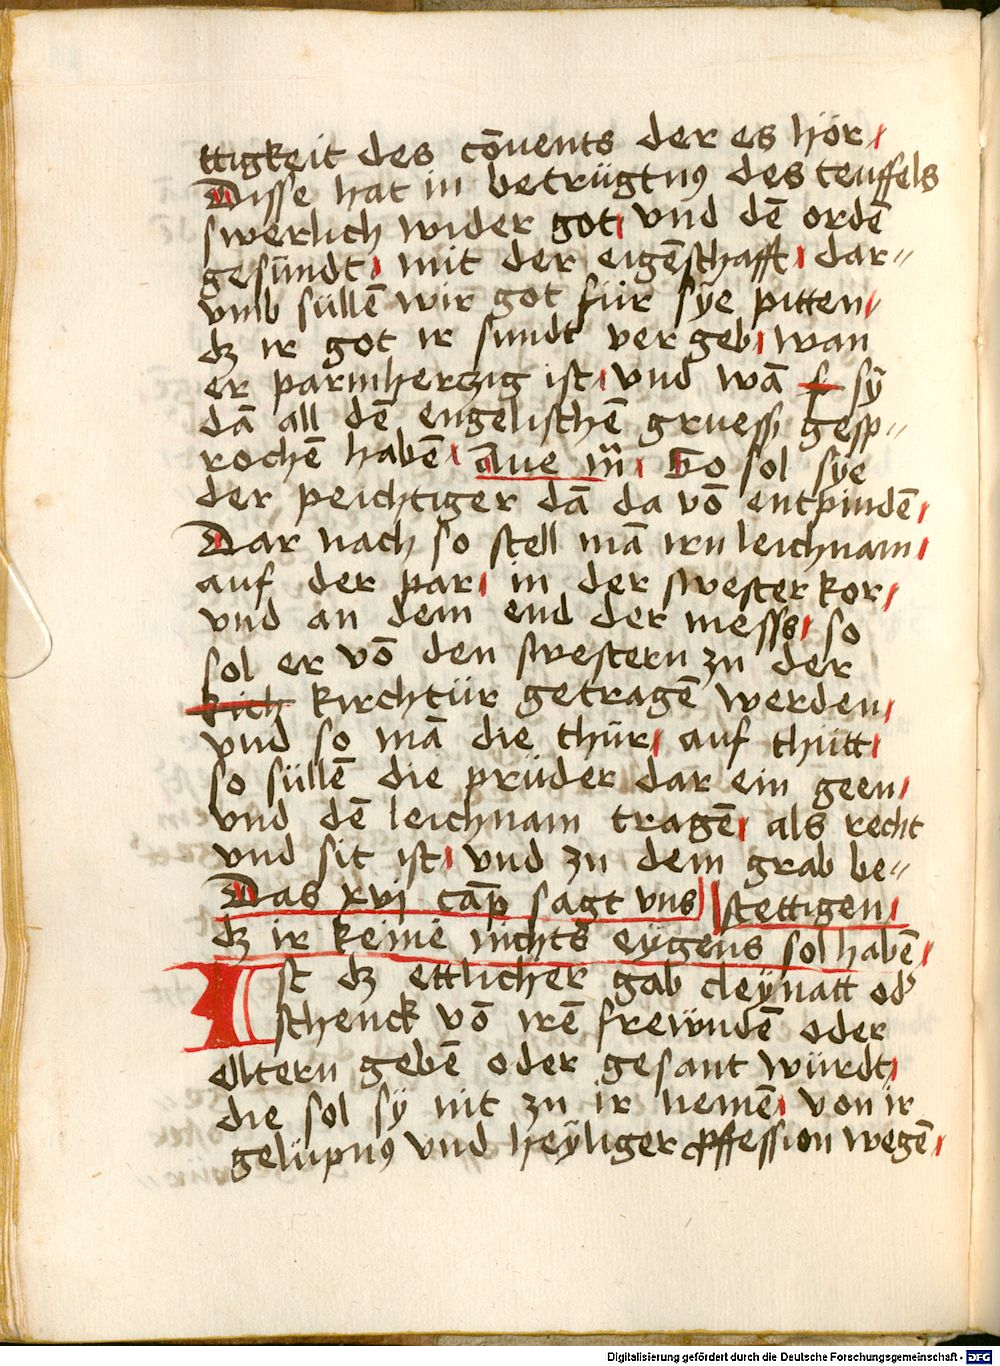 ttigkeit des cōuents der es hör /
Disse hat in betrügtnꝰ des teuffels
swerlich wider got / vnd dē ordē
gesündt / mit der eigēschafft / dar〃
vmb süllē wir got für sÿe pitten /
dꝫ ir got ir sundt ver geb / wan
er parmherczig ist / vnd wā f sÿ
dā all dē engelischē gruess gesp〃
rochē habē / Aue m̄ / So sol sye
der peichtiger dā da vō entpindē /
Dar nach so stell mā irn leichnam /
auf der par / in der swester kor /
vnd an dem end der messs / so
sol er vō den swestern zu der
kich kirchtür getragē werden /
vnd so mā die thür / auf thütt /
so süllē die prüder dar ein geen /
vnd dē leichnam tragē / als recht
vnd sit ist / vnd zu dem grab be〃
Das xvj cap̄ sagt vns stettigen /
dꝫ ir keine nichts eÿgens sol habē /
Ist dꝫ ettlicher gab cleÿnatt od᾽
schenck vō irē freündē oder
elltern gebē oder gesant würdt /
die sol sÿ nit zu ir nemē / von ir
gelüpnꝰ vnd heÿliger ꝓffession wegē /
Digitalisierung gefördert durch die Deutsche Forschungsgemeinschaft - DFG